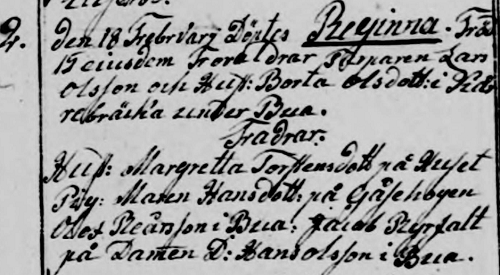 2. den 18 Frebruarÿ Döptes Reginna. Fröd
15 eiusdem Froreldrar Torparen Lars
Olsson och Hust: Borta Olsdott: i Kär
rebräcka under Bua.
Fradrar:
Hust: Margretta Torstensdott på Huset
Pig: Maren Hansdott: på Gåsehogen
Olof Pearsson i Bua: Jacob Ryrfalt
på Damten D: Hans Olsson i Bua.